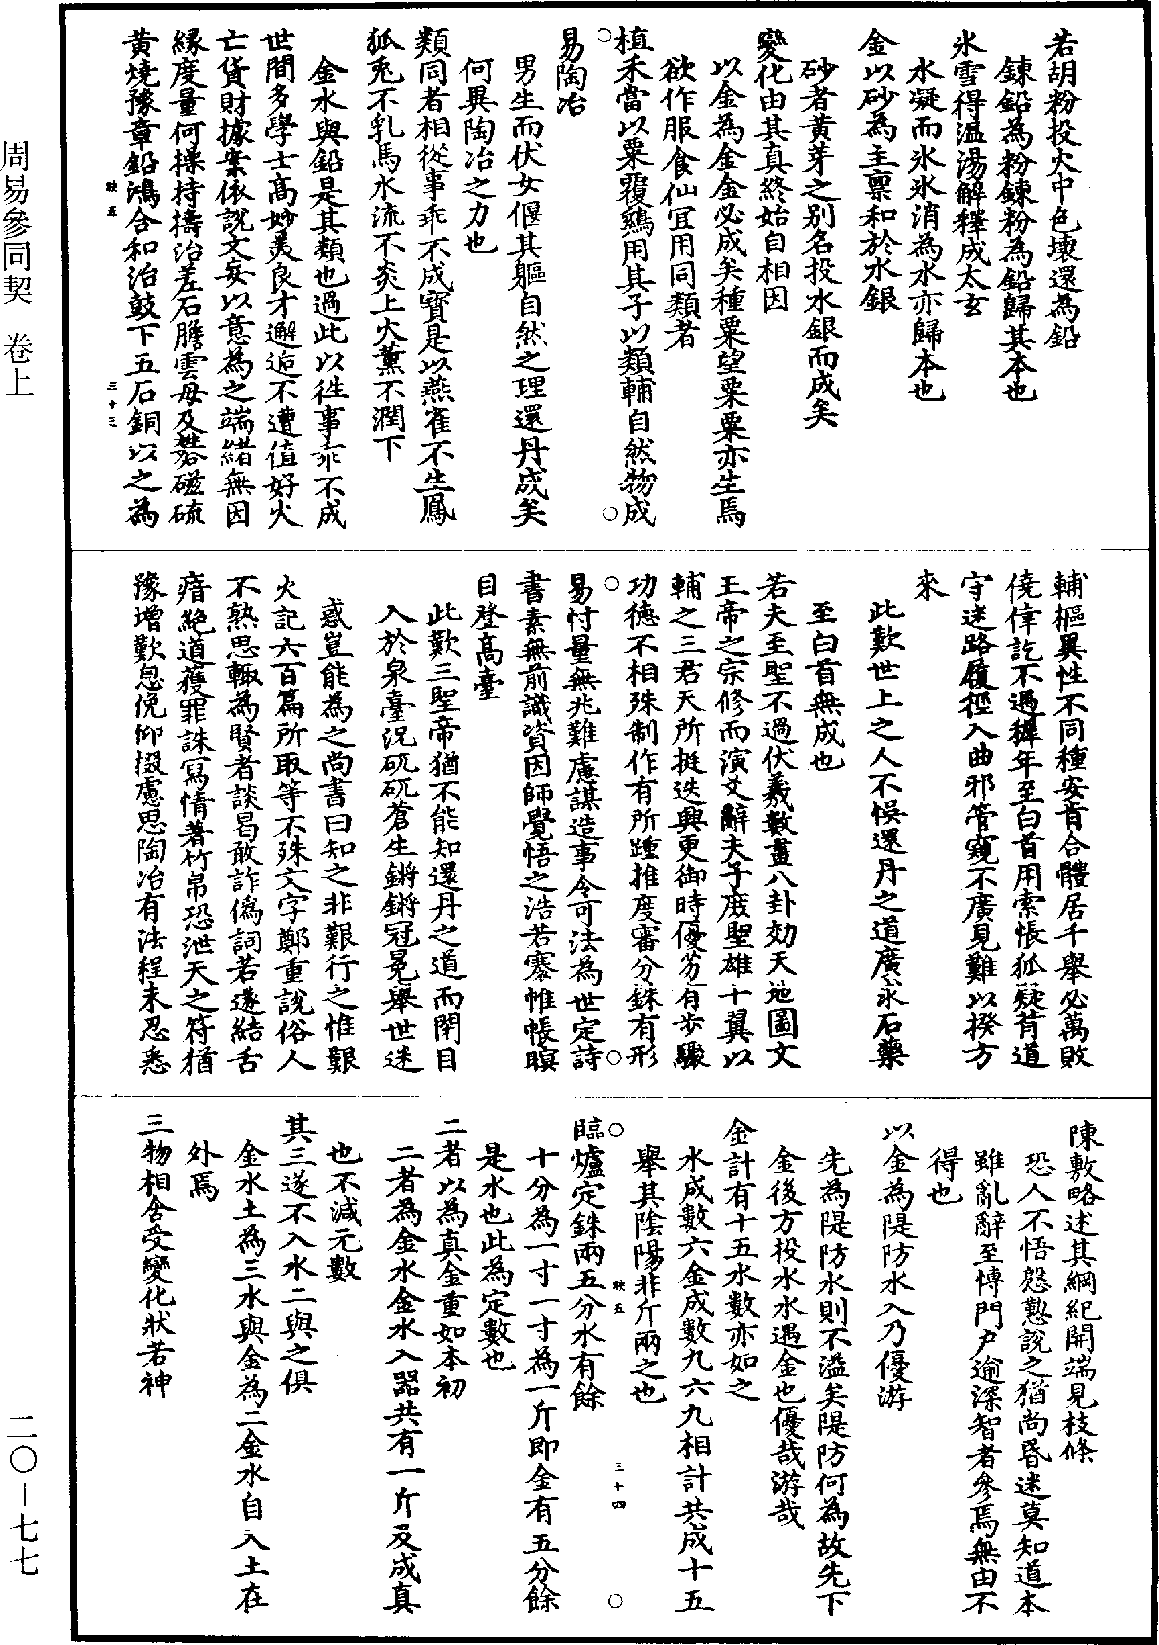 周易參同契　卷上
若胡粉投火中色壞還為鉛
鍊鉛為粉鍊粉為鉛歸其本也
氷雪得温湯解釋成太玄
水凝而氷氷消為水亦歸本也
金以砂為主禀和於水銀
砂者黃芽之別名投水銀而成矣
變化由其真終始自相因
以金為金金必成矣種粟望粟粟亦生焉
欲作服食仙宜用同類者
植禾當以粟覆鷄用其子以類輔自然物成
易陶冶
男生而伏女偃其軀自然之理還丹成矣
何異陶冶之力也
類同者相從事乖不成寶是以燕雀不生鳳
狐兎不乳馬水流不炎上火薰不潤下
金水與鉛是其類也過此以徃事乖不成
世間多學士高妙美良才邂逅不遭值好火
亡貨財據案依說文妄以意為之端緒無因
緣度量何操持擣治差石膽雲母及礬磁硫
黃燒豫章鉛澒合和治鼓下五石銅以之為
映五　三十三
輔樞異性不同種安肯合體居千舉必萬敗
僥倖訖不遇穉年至白首用索悵狐疑背道
守迷路履徑入曲邪管窺不廣見難以揆方
來
此歎世上之人不悮還丹之道廣求石藥
至白首無成也
若夫至聖不過伏羲數畫八卦効天地圖文
王帝之宗修而演爻辭夫子庻聖雄十翼以
輔之三君天所挺迭興更御時優劣有步驟
功德不相殊制作有所踵推度審分銖有形
易忖量無兆難慮謀造事令可法為世定詩
書素無前識資因師覺悟之浩若褰帷帳瞑
目登高臺
此歎三聖帝猶不能知還丹之道而閉目
入於泉臺況矹矹蒼生鏘鏘冠冕舉世迷
惑豈能為之尚書曰知之非艱行之惟艱
火記六百篇所取等不殊文字鄭重說俗人
不熟思輙為賢者談曷敢詐僞詞若遂結舌
瘖絕道獲罪誅寫情著竹帛恐泄天之符猶
豫增歎息俛仰掇慮思陶冶有法程未忍悉
陳敷略述其綱紀開端見枝條
恐人不悟慇懃說之猶尚昏迷莫知道本
雖亂辭至博門戶逾深智者參焉無由不
得也
以金為隄防水入乃優游
先為隄防水則不溢矣隄防何為故先下
金後方投水水遇金也優哉游哉
金計有十五水數亦如之
水成數六金成數九六九相計共成十五
舉其陰陽非斤兩之也
映五　三十四
臨爐定銖兩五分水有餘
十分為一寸一寸為一斤即金有五分餘
是水也此為定數也
二者以為真金重如本初
二者為金水金水入器共有一斤及成真
也不減元數
其三遂不入水二與之俱
金水土為三水與金為二金水自入土在
外焉
三物相含受變化狀若神
二〇—七七